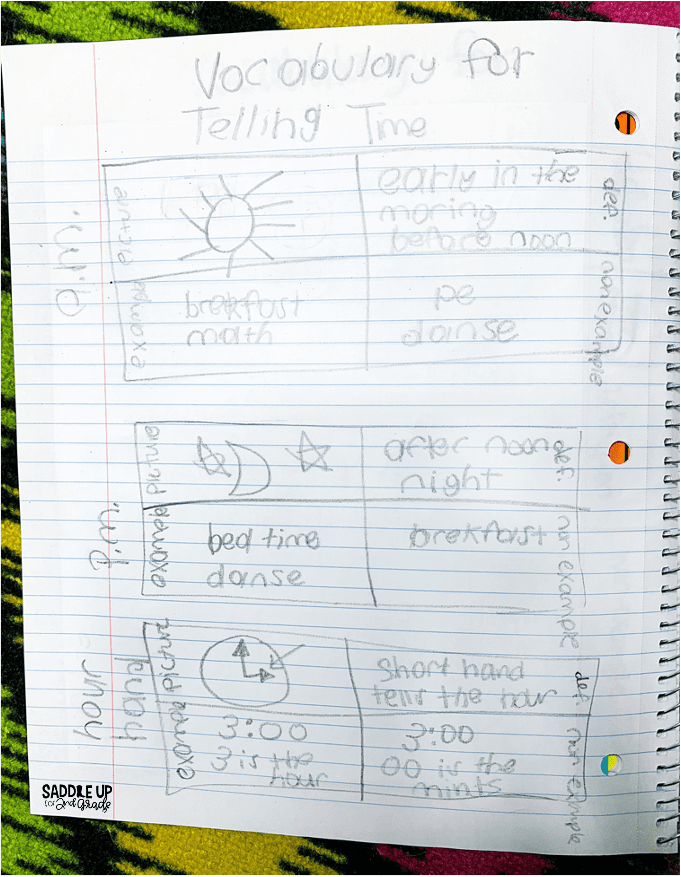 Vocabulary for
Telling Time
a.m.
picture
early in the
moring
before noon
def.
example
brekfast
math
pe
danse
nonexample
p.m.
picture
after noon
night
def.
example
bed time
danse
brekfast
non example
hour
hand
picture
short hand
tells the hour
def.
example
3:00
3 is the
hour
3:00
00 is the
mints
non example
SADDLE UP
for 2nd Grade